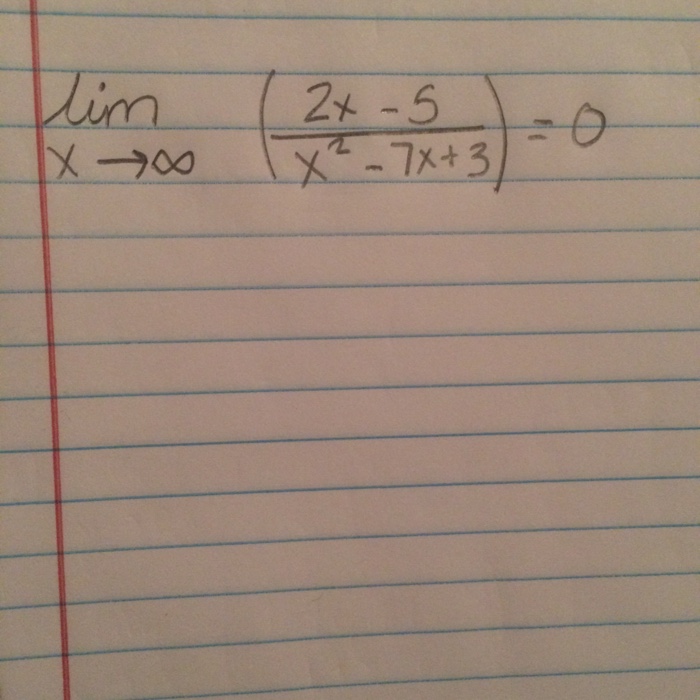 lim x→∞ ( (2x - 5) / (x² - 7x + 3) ) = 0